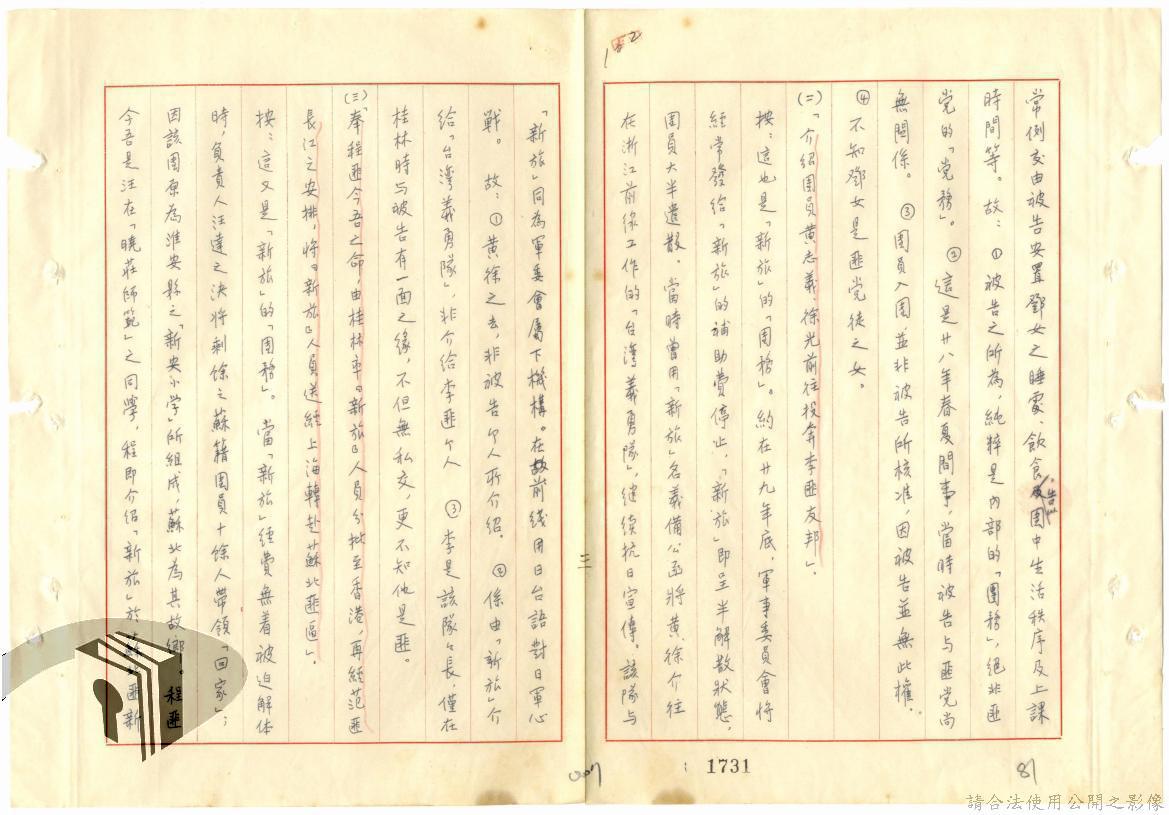 常例交由被告安置鄧女之睡處、飲食及告以團中生活秩序及上課
時間等。故:①被告之所為,純粹是內部的「團務」,絕非匪
党的「党務」。②這是廿八年春夏間事,當時被告与匪党尚
無關係。③團員入團,並非被告所核准,因被告並無此權。
④不知鄧女是匪党徒之女。
(二)「介紹團員黃志義、徐光前往投奔李匪友邦」。
按:這也是「新旅」的「團務」。約在廿九年底,軍事委員會將
經常發給「新旅」的補助費停止,「新旅」即呈半解散狀態,
團員大半遣散。當時曾用「新旅」名義備公函將黃徐介往
在浙江前線工作的「台灣義勇隊」,继续抗日宣傳。該隊与
「新旅」同為軍委會屬下機構。在前线用日台語對日軍心
戰。故:①黃徐之去,非被告个人所介绍。②係由「新旅」介
給「台灣義勇隊」,非介給李匪个人③李是該隊隊長僅在
桂林時与被告有一面之缘,不但無私交,更不知他是匪。
(三)「奉程匪今吾之命,由桂林率『新旅』人員分批至香港,再經范匪
長江之安排,將『新旅』人員送經上海轉赴蘇北匪區」。
按:這又是「新旅」的「團務」。當「新旅」經費無着被迫解体
時,負責人汪達之決將剩餘之蘇籍團員十餘人帶領「回家」;
因該團原為淮安縣之「新安小学」所組成,蘇北為其故鄉。程匪
今吾是汪在「曉莊師範」之同學,程即介紹「新旅」於蘇北匪新
三
1731
81
請合法使用公開之影像